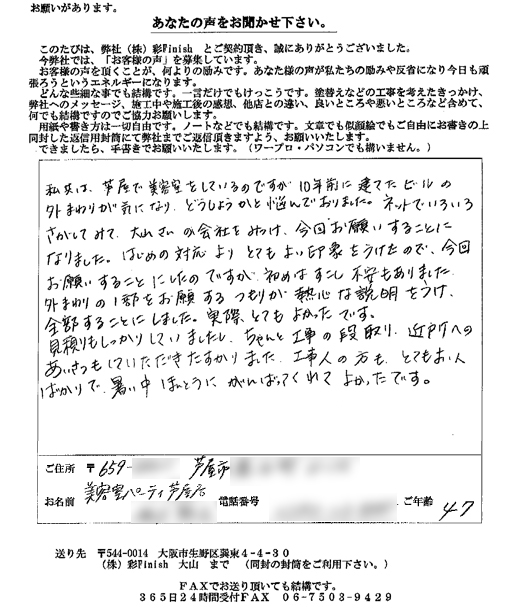 お願いがあります。
あなたの声をお聞かせ下さい。
このたびは、弊社（株）彩Finish とご契約頂き、誠にありがとうございました。
今弊社では、「お客様の声」を募集しています。
お客様の声を頂くことが、何よりの励みです。あなた様の声が私たちの励みや反省になり今日も頑
張ろうというエネルギーになります。
どんな些細な事でも結構です。一言だけでもけっこうです。塗替えなどの工事を考えたきっかけ、
弊社へのメッセージ、施工中や施工後の感想、他店との違い、良いところや悪いところなど含めて、
何でも結構ですのでご協力お願いします。
用紙や書き方は一切自由です。ノートなどでも結構です。文章でも似顔絵でもご自由にお書きの上
同封した返信用封筒にて弊社までご返信頂きますよう、お願いいたします。
できましたら、手書きでお願いいたします。（ワープロ・パソコンでも構いません。）
私共は、芦屋で美容室をしているのですが 10年前に建てたビルの
外まわりが気になり、どうしようかと悩んでおりました。ネットでいろいろ
さがしてみて、大山さんの会社をみつけ、今回お願いすることに
なりました。はじめの対応よりとてもよい印象をうけたので、今回
お願いすることにしたのですが、初めはすこし不安もありました。
外まわりの1部をお願するつもりが熱心な説明をうけ、
全部することにしました。実際、とてもよかったです。
見積りもしっかりしていましたし、ちゃんと工事の段取り、近所への
あいさつもしていただきたすかりました。工事人の方も、とてもお人
ばかりで、暑い中ほんとうにがんばってくれてよかったです。
ご住所 〒659- 芦屋市
お名前 美容室パーティ芦屋店 電話番号 ご年齢 47
送り先 〒544-0014 大阪市生野区巽東4-4-30
（株）彩Finish 大山 まで （同封の封筒をご利用下さい。）
FAXでお送り頂いても結構です。
365日24時間受付FAX 06-7503-9429